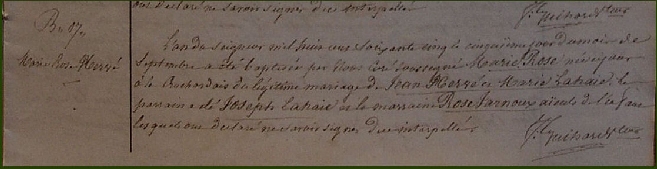 ont déclaré ne savoir signer de ce interpellés
J. Guihard vic
B. 87
Marie Rose Hervé
L'an du seigneur mil huit cent soixante cinq le cinquième jour du mois de
Septembre a été baptisée par Nous soussigné Marie Rose née ce jour
à la du légitime mariage de Jean Hervé et Marie Lahaie, le
parrain a été Joseph Lahaie et la marraine Rose Jarnoux aieuls de l'enfant
lesquels ont déclaré ne savoir signer de ce interpellés.
J. Guihard